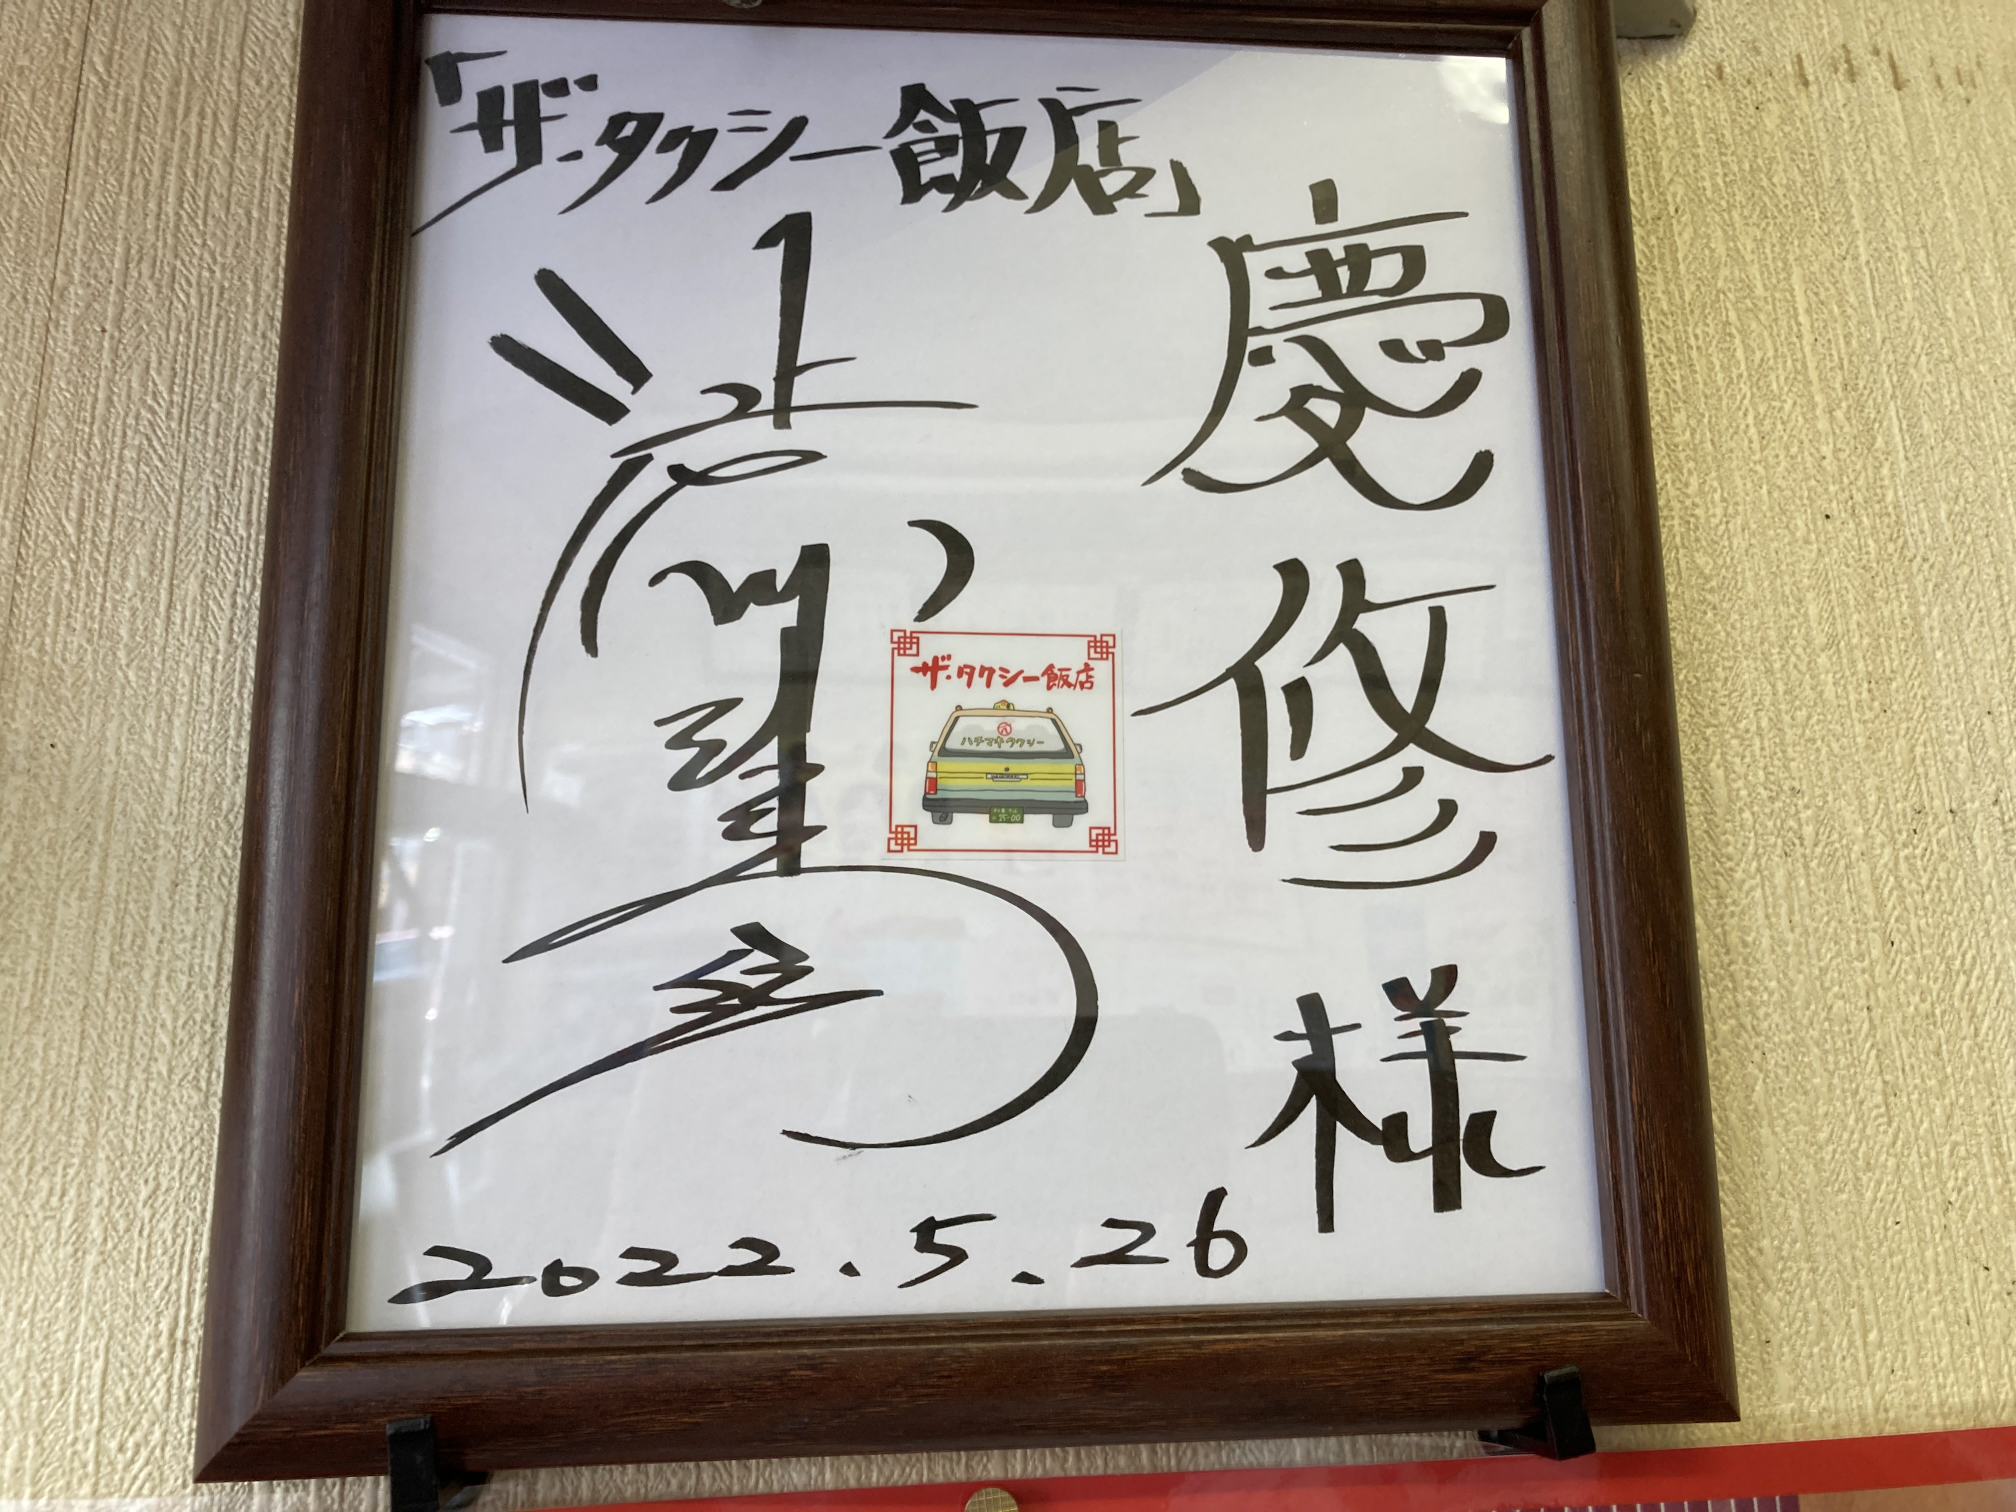 「ザ・タクシー飯店」
慶修様
ザ・タクシー飯店
ハチマキタクシー
25-00
2022.5.26